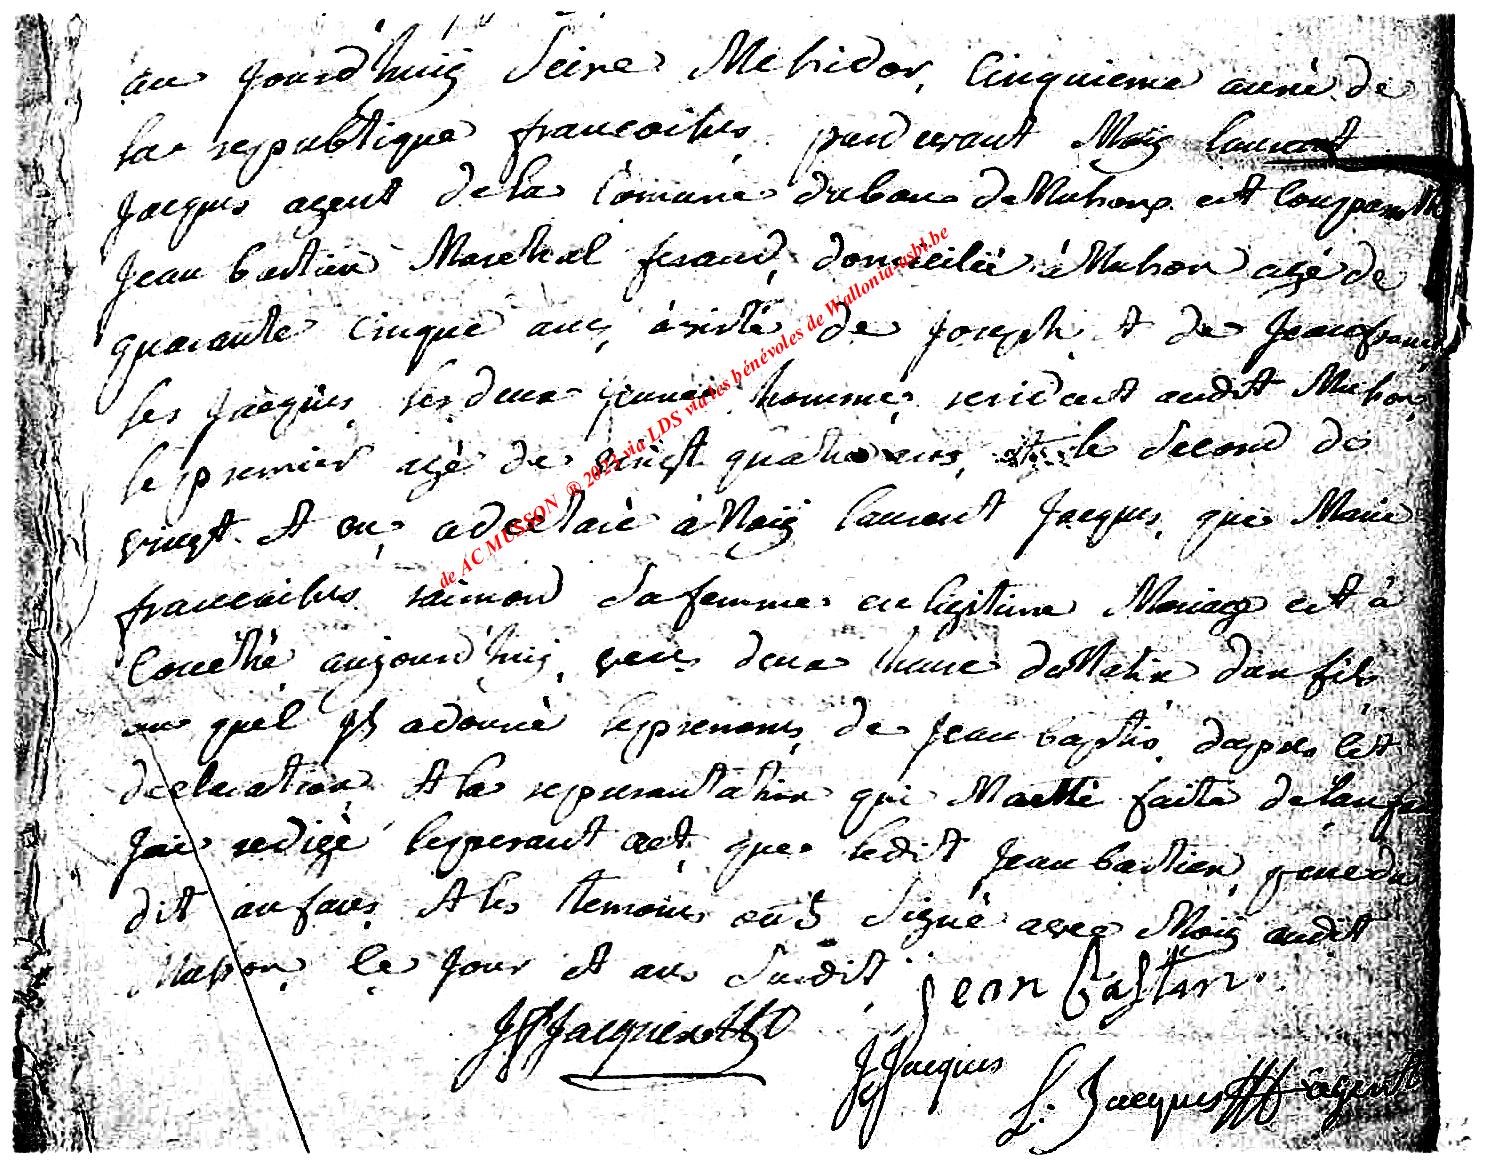 au jourd'huij seise Mesidor, Cinquieme année de
la republique francoises pardevant Moij laurent
Jacques agent de la Comune d'aban de Musson est Comparu
Jean bastien Marechal ferand, domicilié à Musson agé de
quarante Cinque ans, assisté de Joseph et de Jean francois
les Jacques les deux jeunes hommes residant audit Musson,
le premier agé de vingt quatre ans, et le second de
vingt et un, a declaré à Moij laurent Jacques, que Marie
francoises saimon sa femme en legitime Mariage est à
Couché aujourd'huij vers deux heure du Matin d'un fils
au quel il a donné le prenoms de Jean baptis, dapres cet
declaration et la representation qui Ma etté faite de l'anfan
J'ai redigé le present act, que ledit Jean bastien pere du
dit anfans et les temoins ont signé avec Moij audit
Musson le jour et an susdit Jean Bastien
de AC MUSSON ® 2022 via LDS via les bénévoles de Wallonia-asbl.be
Jacques
J Jacques
L. Jacques agent